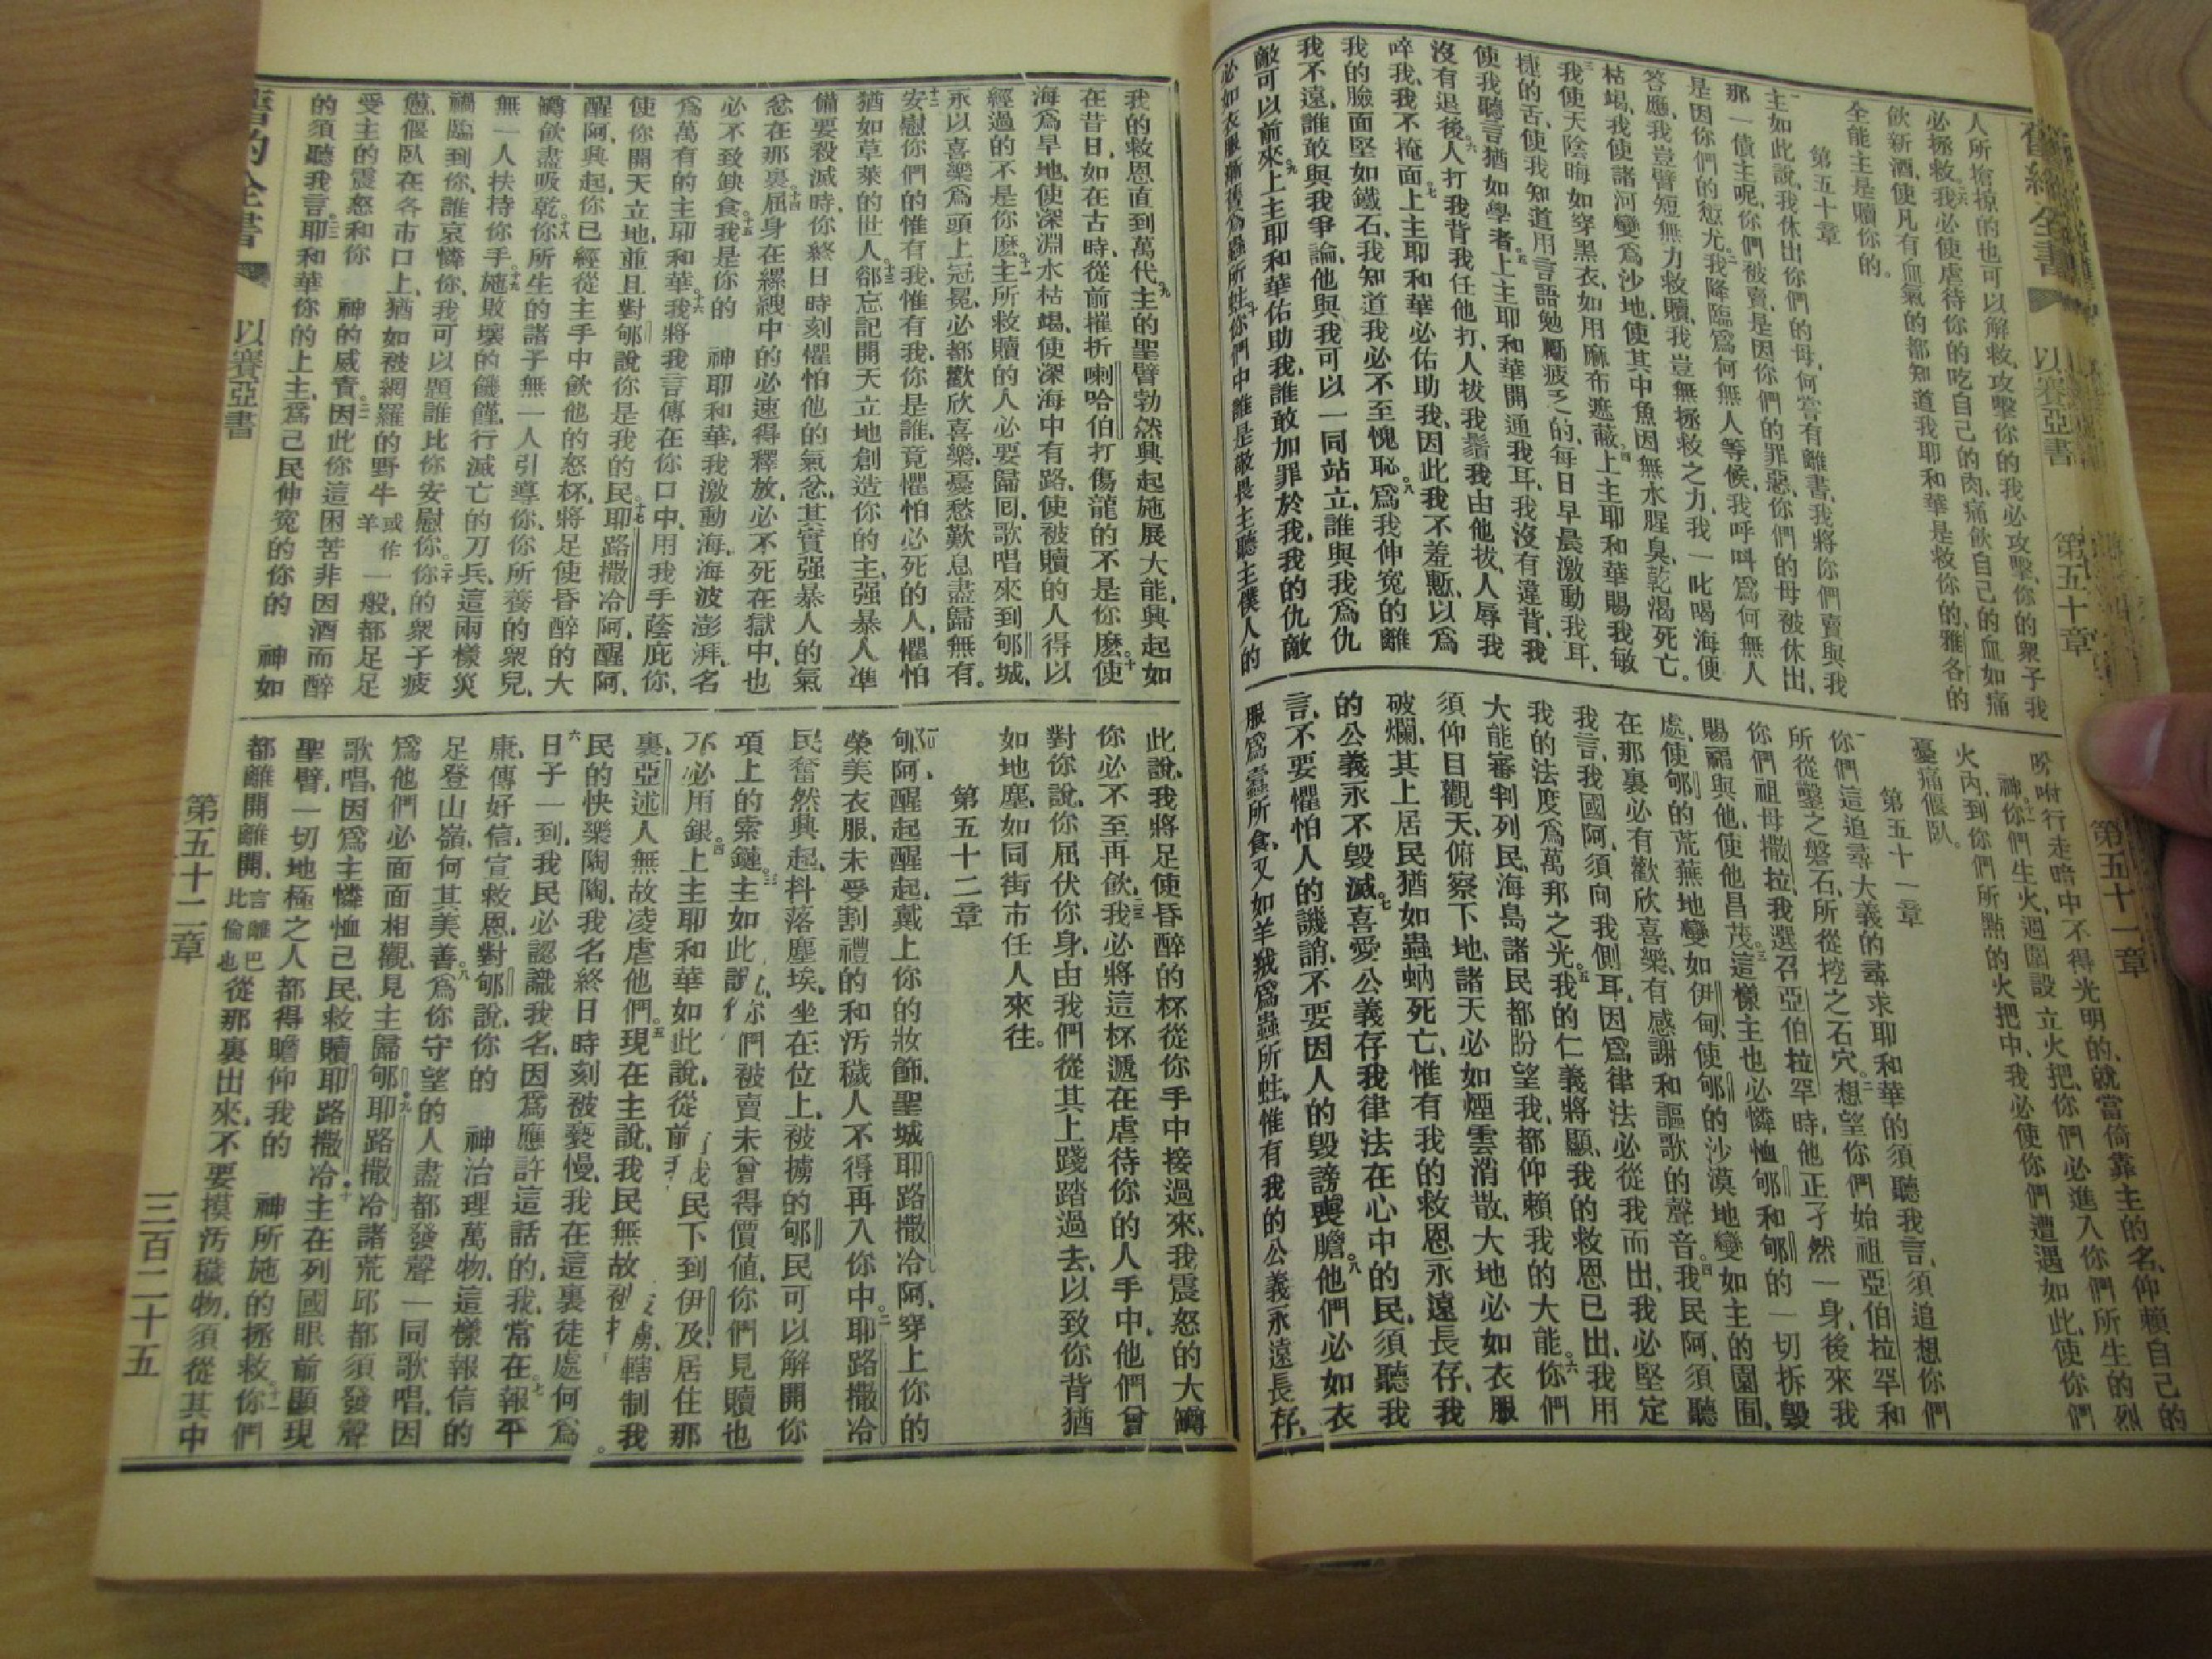 舊約全書　以賽亞書　第五十章　第五十一章
人所搶掠的也可以解救、攻擊你的我必攻擊、你的衆子我
必拯救、我必使虐待你的吃自己的肉、痛飲自己的血如痛
飲新酒、使凡有血氣的都知道我耶和華是救你的、雅各的
全能主是贖你的。
第五十章
主如此說、我休出你們的母、何嘗有離書、我將你們賣與我
那一債主呢、你們被賣、是因你們的罪惡、你們的母被休出、
是因你們的愆尤、我降臨爲何無人等候、我呼叫爲何無人
答應、我豈臂短無力救贖、我豈無拯救之力、我一叱喝海便
枯竭、我使諸河變爲沙地、使其中魚因無水腥臭、乾渴死亡。
我使天陰晦如穿黑衣、如用麻布遮蔽、上主耶和華賜我敏
捷的舌、使我知道用言語勉勵疲乏的、每日早晨激動我耳、
使我聽言猶如學者、上主耶和華開通我耳、我沒有違背、我
沒有退後。人打我背我任他打、人拔我鬚我由他拔、人辱我
啐我、我不掩面、上主耶和華必佑助我、因此我不羞慚、以爲
我的臉面堅如鐵石、我知道我必不至愧恥。爲我伸寃的離
我不遠、誰敢與我爭論、他與我可以一同站立、誰與我爲仇
敵可以前來、上主耶和華佑助我、誰敢加罪於我、我的仇敵
必如衣服漸舊爲蟲所蛀、你們中誰是敬畏主聽主僕人的
吩咐行走暗中不得光明的、就當倚靠主的名、仰賴自己的
神、你們生火、週圍設立火把、你們必進入你們所生的烈
火內、到你們所點的火把中、我必使你們遭遇如此、使你們
憂痛偃臥。
第五十一章
你們這追尋大義的、尋求耶和華的、須聽我言、須追想你們
所從鑿之磐石、所從挖之石穴、想望你們始祖亞伯拉罕和
你們祖母撒拉、我選召亞伯拉罕時、他正孑然一身、後來我
賜福與他、使他昌茂、這樣主也必憐恤郇、和郇的一切拆毀
處、使郇的荒蕪地變如伊甸、使郇的沙漠地變如主的園囿、
在那裏必有歡欣喜樂、有感謝和謳歌的聲音、我民阿、須聽
我言、我國阿、須向我側耳、因爲律法必從我而出、我必堅定
我的法度爲萬邦之光、我的仁義將顯、我的救恩已出、我用
大能審判列民、海島諸民都盼望我、都仰賴我的大能。你們
須仰目觀天、俯察下地、諸天必如煙雲消散、大地必如衣服
破爛、其上居民猶如蟲蚋死亡、惟有我的救恩永遠長存、我
的公義永不毀滅。喜愛公義存我律法在心中的民、須聽我
言、不要懼怕人的譏誚、不要因人的毀謗喪膽。他們必如衣
服爲蠹所食、又如羊羢爲蟲所蛀、惟有我的公義永遠長存、
我的救恩直到萬代、主的聖臂勃然興起、施展大能、興起如
在昔日、如在古時、從前摧折喇哈伯打傷龍的不是你麽。使
海爲旱地、使深淵水枯竭、使深海中有路、使被贖的人得以
經過的不是你麽、主所救贖的人必要歸回、歌唱來到郇城、
永以喜樂爲頭上冠冕、必都歡欣喜樂、憂愁歎息盡歸無有。
安慰你們的惟有我、惟有我、你是誰、竟懼怕必死的人、懼怕
猶如草萊的世人、郤忘記開天立地創造你的主、强暴人準
備要殺滅時、你終日時刻懼怕他的氣忿、其實强暴人的氣
忿在那裏、屈身在縲絏中的必速得釋放、必不死在獄中、也
必不致缺食、我是你的　神耶和華、我激動海、海波澎湃、名
爲萬有的主耶和華、我將我言傳在你口中、用我手蔭庇你、
使你開天立地、並且對郇說、你是我的民、耶路撒冷阿、醒阿、
醒阿、興起、你已經從主手中飲他的怒杯、將足使昏醉的大
罇飲盡吸乾、你所生的諸子無一人引導你、你所養的衆兒、
無一人扶持你手、施敗壞的饑饉、行滅亡的刀兵、這兩樣災
禍臨到你、誰哀憐你、我可以題誰比你安慰你。你的衆子疲
憊、偃臥在各市口上、猶如被網羅的野牛或作羊一般、都足足
受主的震怒和你　神的威責。因此你這困苦非因酒而醉
的須聽我言、耶和華你的上主、爲己民伸寃的你的　神如
此說、我將足使昏醉的杯從你手中接過來、我震怒的大罇
你必不至再飲、我必將這杯遞在虐待你的人手中、他們曾
對你說、你屈伏你身、由我們從其上踐踏過去、以致你背猶
如地塵、如同街市任人來往。
第五十二章
郇阿、醒起醒起、戴上你的妝飾、聖城耶路撒冷阿、穿上你的
榮美衣服、未受割禮的和汚穢人不得再入你中、耶路撒冷
民奮然興起、抖落塵埃、坐在位上、被擄的郇民可以解開你
項上的索鏈、主如此說、你們被賣未曾得價值、你們見贖也
不必用銀、上主耶和華如此說、從前我民下到伊及、居住那
裏、亞述人無故凌虐他們。現在主說、我民無故被擄、轄制我
民的快樂陶陶、我名終日時刻被褻慢、我在這裏徒處何爲。
日子一到、我民必認識我名、因爲應許這話的、我常在。報平
康、傳好信、宣救恩、對郇說、你的　神治理萬物、這樣報信的
足登山嶺、何其美善。爲你守望的人盡都發聲一同歌唱、因
爲他們必面面相觀、見主歸郇、耶路撒冷諸荒邱都須發聲
歌唱、因爲主憐恤己民、救贖耶路撒冷、主在列國眼前顯現
聖臂、一切地極之人都得瞻仰我的　神所施的拯救、你們
都離開離開、言離巴比倫也從那裏出來、不要摸汚穢物、須從其中
約全書　以賽亞書　第五十二章　三百二十五